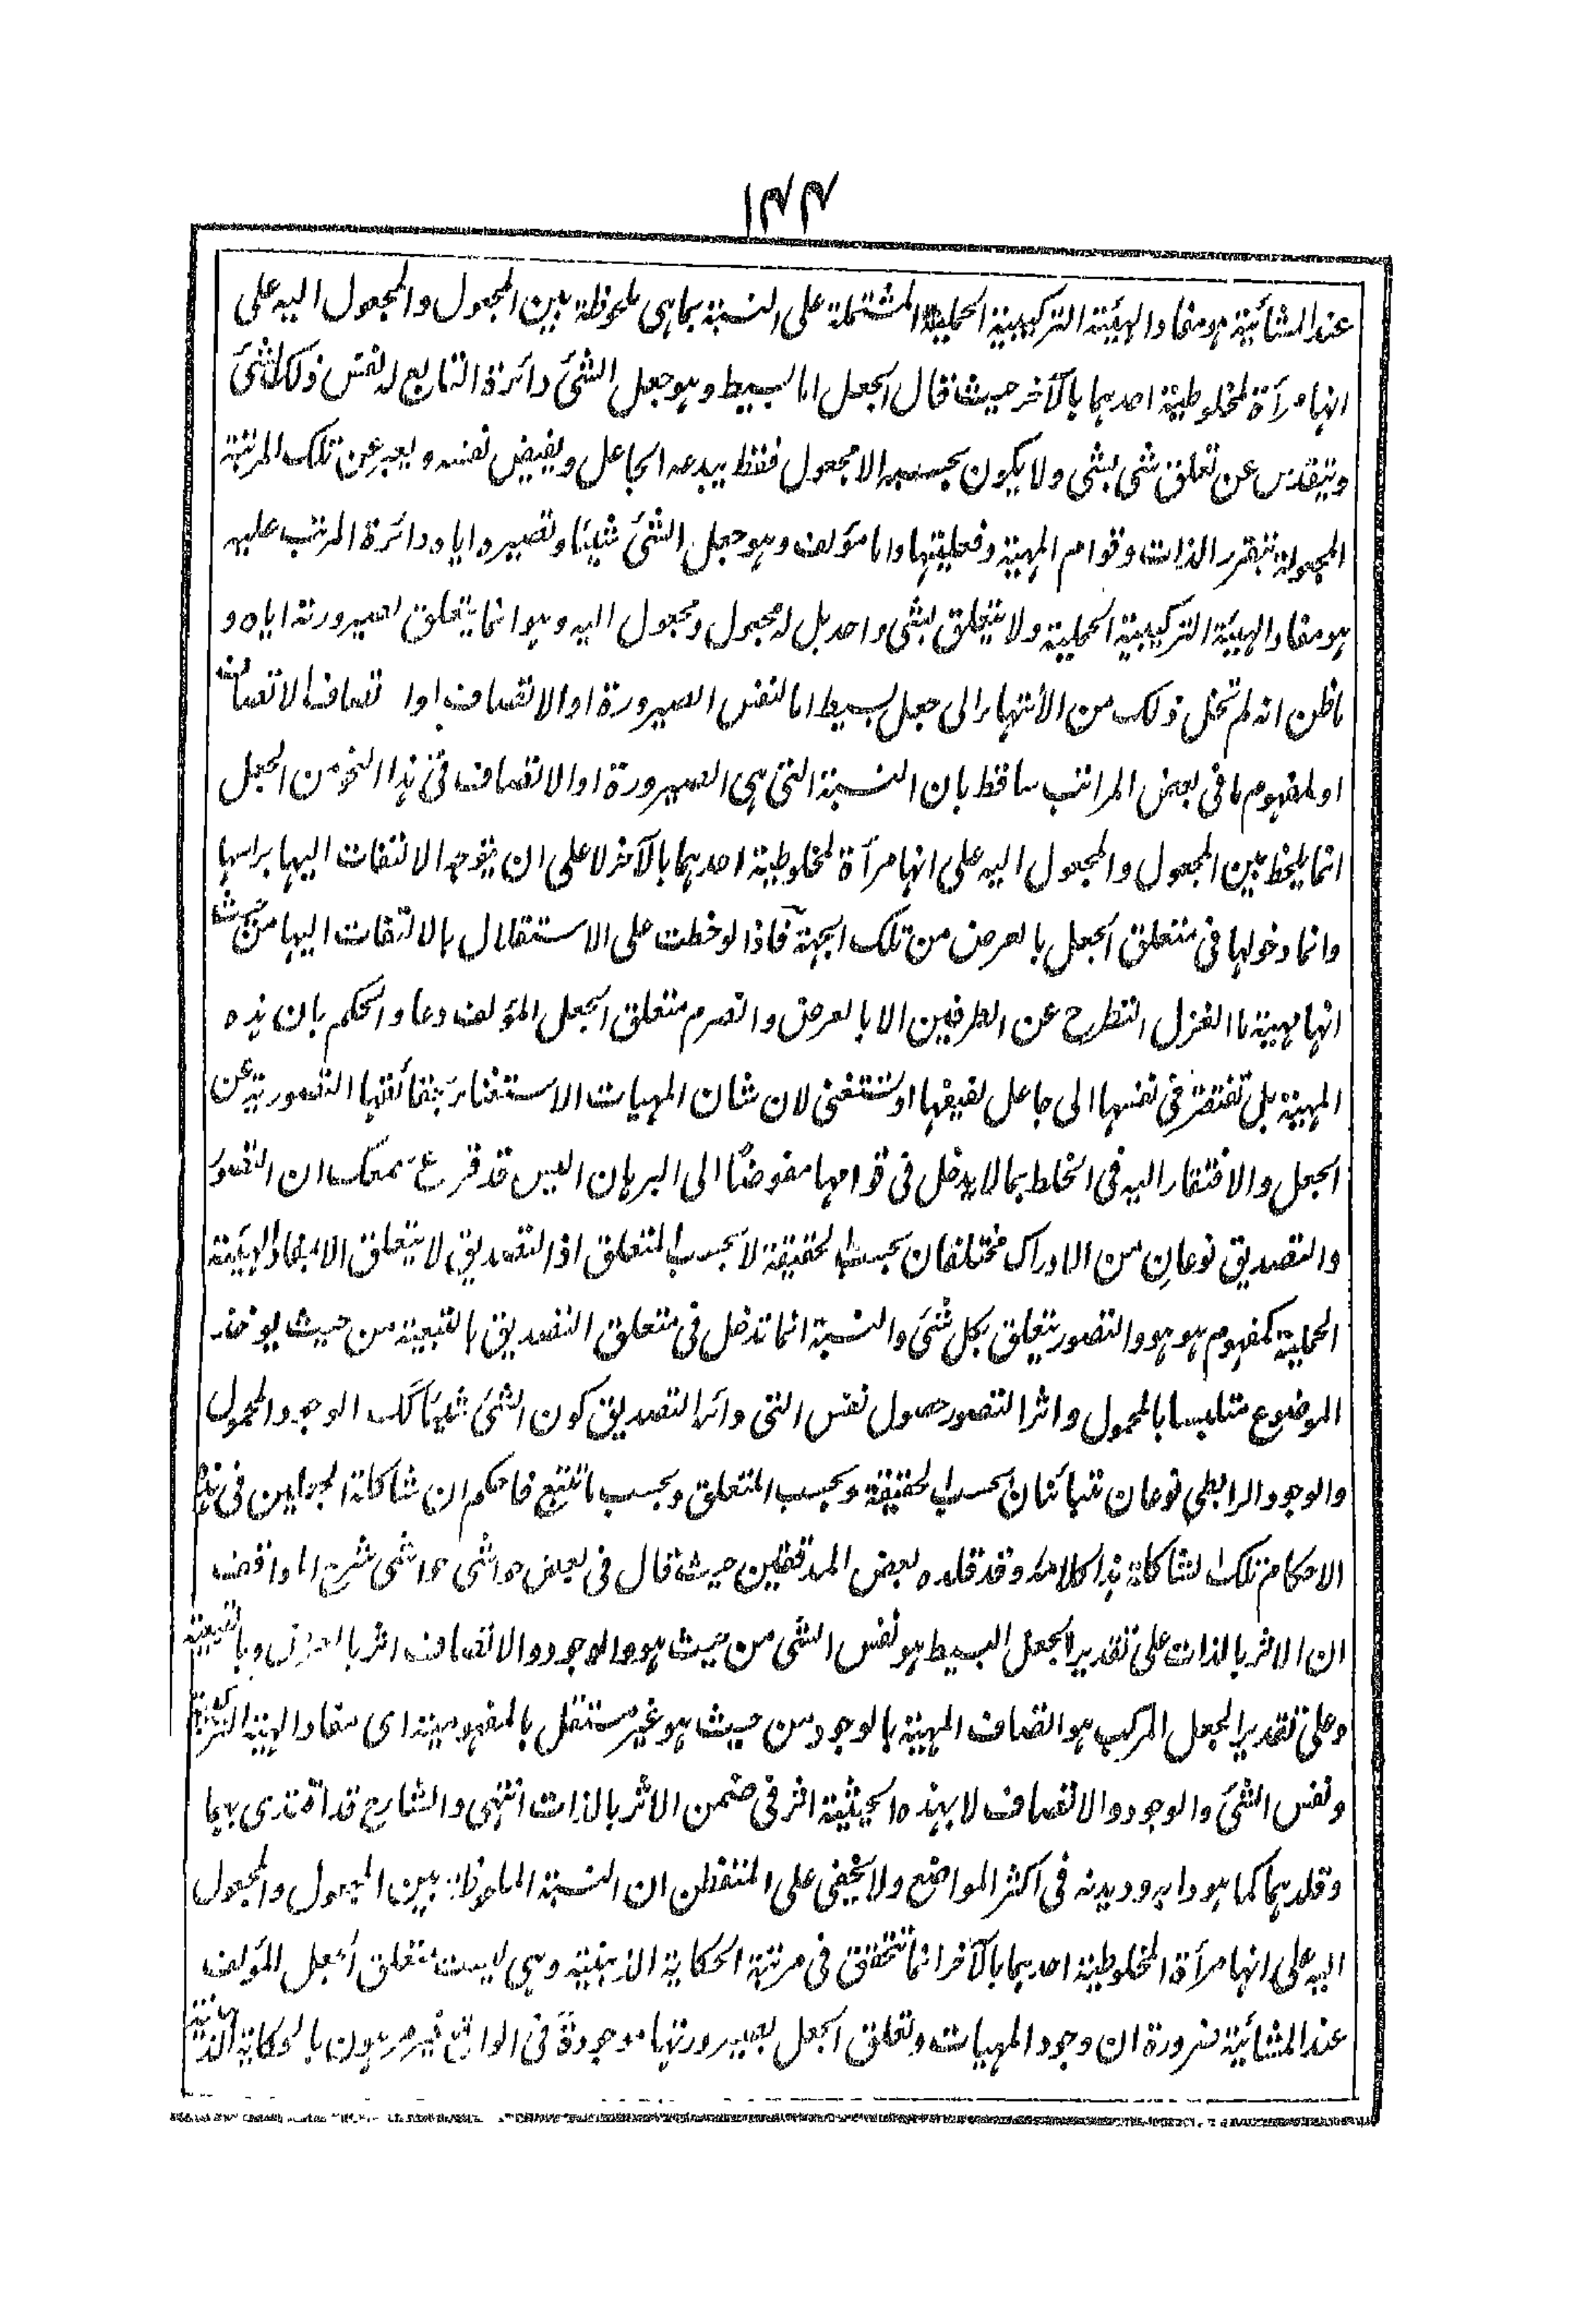 ١٣٣
عند المشائية هو مفاد الهيئة التركيبية الحملية المشتملة على النسبة بما هى ملحوظة بين المجعول والمجعول اليه على
انها مرآة لمخلوطية احدهما بالآخر حيث قال الجعل اما بسيط وهو جعل الشئ واثره التابع له نفس ذلك الشئ
ويتقدس عن تعلق شى بشى ولا يكون بحسبه الا مجعول فقط يبدعه الجاعل ويفيض نفسه ويعبر عن تلك المرتبة
المجعولة بتقرر الذات وقوام المهية وفعليتها واما مؤلف وهو جعل الشئ شيئا وتصييره اياه واثره المرتب عليه
هو مفاد الهيئة التركيبية الحملية ولا يتعلق بشى واحد بل له مجعول ومجعول اليه وهو انما يتعلق بصيرورته اياه و
ما ظن انه لم تخل ذلك من الانتهاء الى جعل بسيط اما لنفس الصيرورة او الاتصاف او اتصاف الاتصاف
او لمفهوم ما فى بعض المراتب ساقط بان النسبة التى هى الصيرورة او الاتصاف فى هذا النحو من الجعل
انما يلحظ بين المجعول والمجعول اليه على انها مرآة لمخلوطية احدهما بالآخر لا على ان يتوجه الالتفات اليها براسها
وانما دخولها فى متعلق الجعل بالعرض من تلك الجهة فاذا لوحظت على الاستقلال بالالتفات اليها من حيث
انها مهية ما انعزل النظر ح عن الطرفين الا بالعرض وانصرم متعلق الجعل المؤلف وعاد الحكم بان هذه
المهية بل تفتقر فى نفسها الى جاعل يفيضها او تستغنى لان شان المهيات الاستغناء بحقائقها التصورية عن
الجعل والافتقار اليه فى الخلط بما لا يدخل فى قوامها مفوضا الى البرهان اليس قد قرع سمعك ان التصور
والتصديق نوعان من الادراك مختلفان بحسب الحقيقة لا بحسب المتعلق اذ التصديق لا يتعلق الا بمفاد الهيئة
الحملية كمفهوم هو هو والتصور يتعلق بكل شئ والنسبة انما تدخل فى متعلق التصديق بالتبعية من حيث يوخذ
الموضوع متلبسا بالمحمول واثر التصور حصول نفس الشى واثر التصديق كون الشئ شيئا كك الوجود المحمول
والوجود الرابطى نوعان متبائنان بحسب الحقيقة وبحسب المتعلق وبحسب ما تتبع فاحكم ان شاكلة الجعلين فى هذه
الاحكام تلك الشاكلة هذا كلامه وقد قلده بعض المدققين حيث قال فى بعض حواشى حواشى شرح المواقف
ان الاثر بالذات على تقدير الجعل البسيط هو نفس الشى من حيث هو والوجود والاتصاف اثر بالعرض وبالتبعية
وعلى تقدير الجعل المركب هو اتصاف المهية بالوجود من حيث هو غير مستقل بالمفهومية اى مفاد الهيئة التركيبية
ونفس الشئ والوجود والاتصاف لا بهذه الحيثية اثر فى ضمن الاثر بالذات انتهى والشارح قد اقتدى بهما
وقلدهما كما هو دابه وديدنه فى اكثر المواضع ولا يخفى على المتفطن ان النسبة الملحوظة بين المجعول والمجعول
اليه على انها مرآة المخلوطية احدهما بالآخر انما تتحقق فى مرتبة الحكاية الذهنية وهى ليست متعلق الجعل المؤلف
عند المشائية ضرورة ان وجود المهيات وتعلق الجعل بصيرورتها موجودة فى الواقع غير مرهون بالحكاية الذهنية